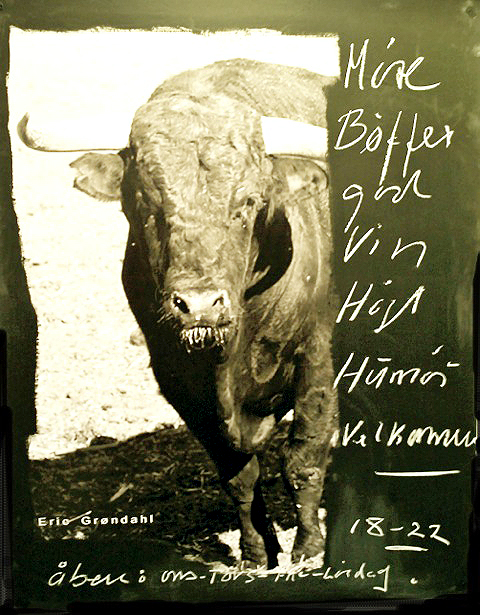 Møre
Bøffer
god
Vin
Højt
Humør
Velkommen
18-22
Eric Grøndahl
åben: ons-Tors-Fre-Lördag.